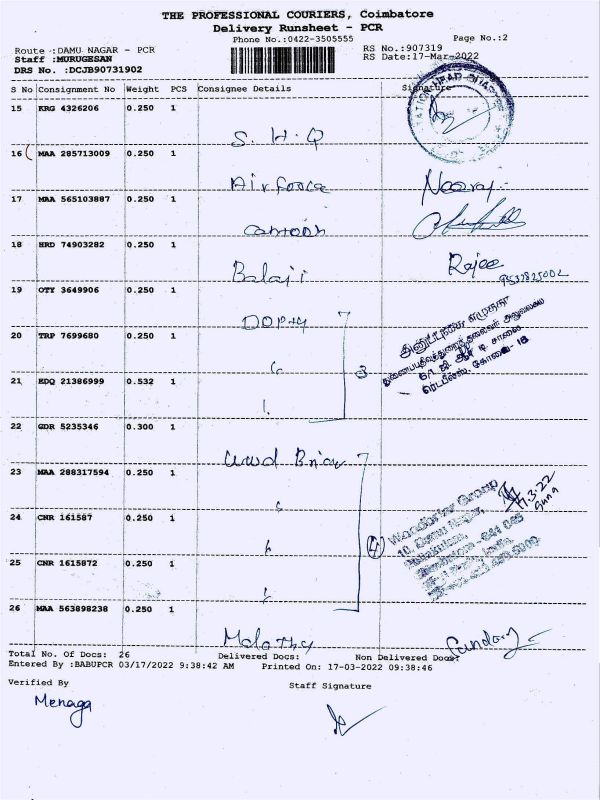 THE PROFESSIONAL COURIERS, Coimbatore
Delivery Runsheet - PCR
Phone No.:0422-3505555 Page No.:2
Route :DAMU NAGAR - PCR RS No.:907319
Staff :MURUGESAN RS Date:17-Mar-2022
DRS No. :DCJB90731902
S No Consignment No Weight PCS Consignee Details Signature
15 KRG 4326206 0.250 1
S. H. Q
16 MAA 285713009 0.250 1
Airforce Neeraj
17 MAA 565103887 0.250 1
canteen
18 HRD 74903282 0.250 1
Balaji Rajee
19 OTY 3649906 0.250 1
DOPHY
20 TRP 7699680 0.250 1
3
21 EDQ 21386999 0.532 1
22 GDR 5235346 0.300 1
23 MAA 288317594 0.250 1
17.3.22
Woodbriar Group
10, Damu Nagar,
24 CNR 161587 0.250 1
4
25 CNR 1615872 0.250 1
26 MAA 563898238 0.250 1
Malathy
Total No. Of Docs: 26 Delivered Docs: Non Delivered Docs:
Entered By :BABUPCR 03/17/2022 9:38:42 AM Printed On: 17-03-2022 09:38:46
Verified By Staff Signature
Menaga